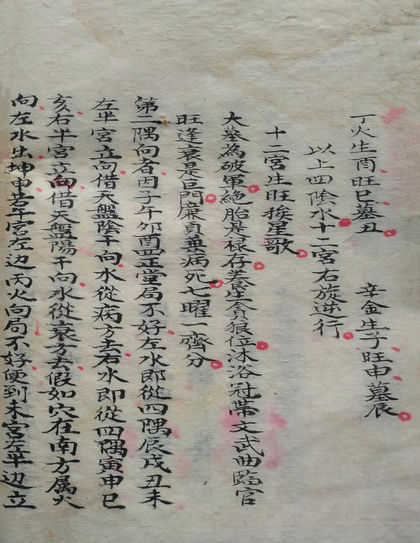 丁火生酉旺巳墓丑　辛金生子旺申墓辰
以上四陰水十二宮右旋逆行
十二宮生旺挨星歌
大墓為破軍絶胎是根存養星貪狼位沐浴冠帶文武曲臨官
旺逢衰是巨門廉貞兼病死七曜一齊分
第二隅向者因子午卯酉四堂局不好左水即從四隅辰戌丑未
左半宮立向借天盤陰干向水從病方去右水即從四隅寅申巳
亥右半宮立向借天盤陽干向水從衰方去假如穴在南方属火
向左水出坤申若午宮左边丙火向局不好便到未宮左半边立